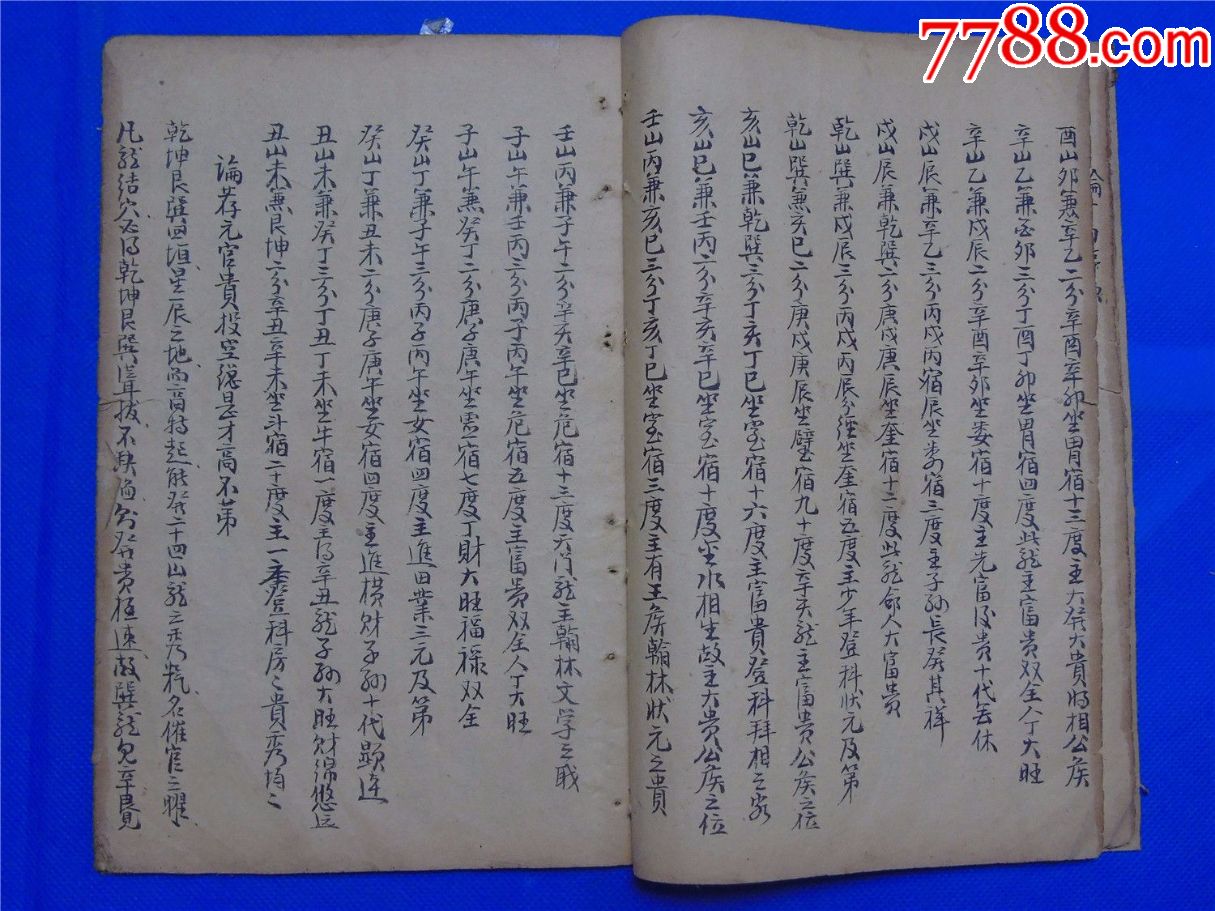 7788.com
酉山卯兼辛乙二分辛酉辛卯坐胃宿十三度主大發大貴将相公侯
辛山乙兼酉卯三分丁酉丁卯坐胃宿四度此龍主富貴双全人丁大旺
辛山乙兼戌辰二分辛酉辛卯坐娄宿十度主先富後貴十代云休
戌山辰兼辛乙三分丙戌丙辰坐娄宿三度主子孙長發其祥
戌山辰兼乾巽二分庚戌庚辰坐奎宿十二度此龍命人大富貴
乾山巽兼戌辰三分丙戌丙辰分経坐奎宿五度主少年登科状元及第
乾山巽兼亥巳二分庚戌庚辰坐壁宿九十度辛亥龍主富貴公侯之位
亥山巳兼乾巽三分丁亥丁巳坐室宿十六度主富貴登科拜相之客
亥山巳兼壬丙二分辛亥辛巳坐室宿十度坐水相生故主大貴公侯之位
壬山丙兼亥巳三分丁亥丁巳坐室宿三度主有王侯翰林状元之貴
壬山丙兼子午二分辛亥辛巳坐危宿十三度天门龍主翰林文学之职
子山午兼壬丙三分丙子丙午坐危宿五度主富貴双全人丁大旺
子山午兼癸丁二分庚子庚午坐虚宿七度丁財大旺福禄双全
癸山丁兼子午三分丙子丙午坐女宿四度主進田業三元及第
癸山丁兼丑未二分庚子庚午坐女宿四度主進横财子孙十代顕達
丑山未兼癸丁三分丁丑丁未坐牛宿一度主得辛丑龍子孙大旺财綿悠远
丑山未兼艮坤二分辛丑辛未坐斗宿二十度主一举登科房々貴秀均々
論若元官貴投空總是才高不第
乾坤艮巽四垣星辰之地而高特起能發二十四山龍之秀氣名催官之曜
凡龍結穴必得乾坤艮巽聳拔不缺陷則發貴極速故巽龍見辛艮見